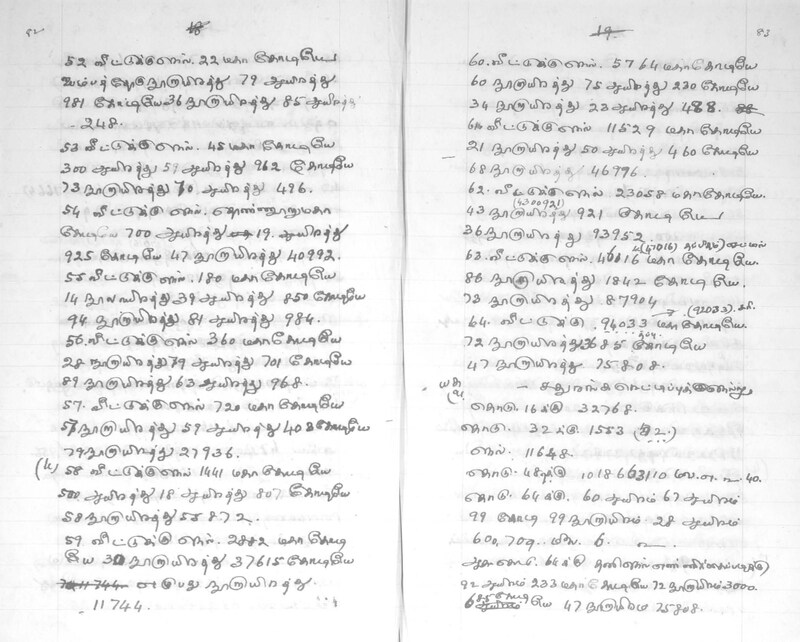 82
18
52 வீட்டுக்கு எல். 22 மகா கோடியே
நூறாயிரத்து 79 ஆயிரத்து
981 கோடியே 36 நூறாயிரத்து 85 ஆயிரத்து
- 248.
53 வீட்டுக்கு எல். 45 மகா கோடியே
300 ஆயிரத்து 59 ஆயிரத்து 962 கோடியே
73 நூறாயிரத்து 70 ஆயிரத்து 496.
54 வீட்டுக்கு எல். தொண்ணூறு மகா
கோடியே 700 ஆயிரத்து 19. ஆயிரத்து
925 கோடியே 47 நூறாயிரத்து 40992.
55 வீட்டுக்கு எல். 180 மகா கோடியே
14 நூறாயிரத்து 39 ஆயிரத்து 850 கோடியே
94 நூறாயிரத்து 81 ஆயிரத்து 984.
56. வீட்டுக்கு எல் 360 மகா கோடியே
28 நூறாயிரத்து 79 ஆயிரத்து 701 கோடியே
89 நூறாயிரத்து 63 ஆயிரத்து 968.
57. வீட்டுக்கு எல் 720 மகா கோடியே
57 நூறாயிரத்து 59. ஆயிரத்து 403 கோடியே
79 நூறாயிரத்து 27936.
58 வீட்டுக்கு எல் 1441 மகா கோடியே
500 ஆயிரத்து 18 ஆயிரத்து 807 கோடியே
58 நூறாயிரத்து 55872.
59 வீட்டுக்கு எல். 2882 மகா கோடி
யே 30 நூறாயிரத்து 37615 கோடியே
நூறாயிரத்து
11744.
83
19
60. வீட்டுக்கு எல். 5764 மகா கோடியே
60 நூறாயிரத்து 75 ஆயிரத்து 230 கோடியே
34 நூறாயிரத்து 23 ஆயிரத்து 488.
61 வீட்டுக்கு எல் 11529 மகா கோடியே
21 நூறாயிரத்து 50 ஆயிரத்து 460 கோடியே
68 நூறாயிரத்து 46976.
62. வீட்டுக்கு எல் 23058 மகா கோடியே.
(4300921)
43 நூறாயிரத்து 921 கோடியே
36 நூறாயிரத்து 93952
63. வீட்டுக்கு எல். 46116 மகா கோடியே.
86 நூறாயிரத்து 1842 கோடியே
73 நூறாயிரத்து 87904
(92033)
64. வீட்டுக்கு. 94033 மகா கோடியே.
72 நூறாயிரத்து 3685 கோடியே
47 நூறாயிரத்து 75808.
தொகு. 16 க்கு 32768.
தொகு. 32 க்கு 1553
எல். 11648.
தொகு. 48 க்கு
தொகு. 64 க்கு. 60 ஆயிரம் 67 ஆயிரம்
99 கோடி 99 நூறாயிரம் 28 ஆயிரம்
64 க்கு
92 ஆயிரம் 233 மகா கோடியே 72 நூறாயிரம் 3000.
685 கோடி
யே 47 நூறாயிரம் 75808.